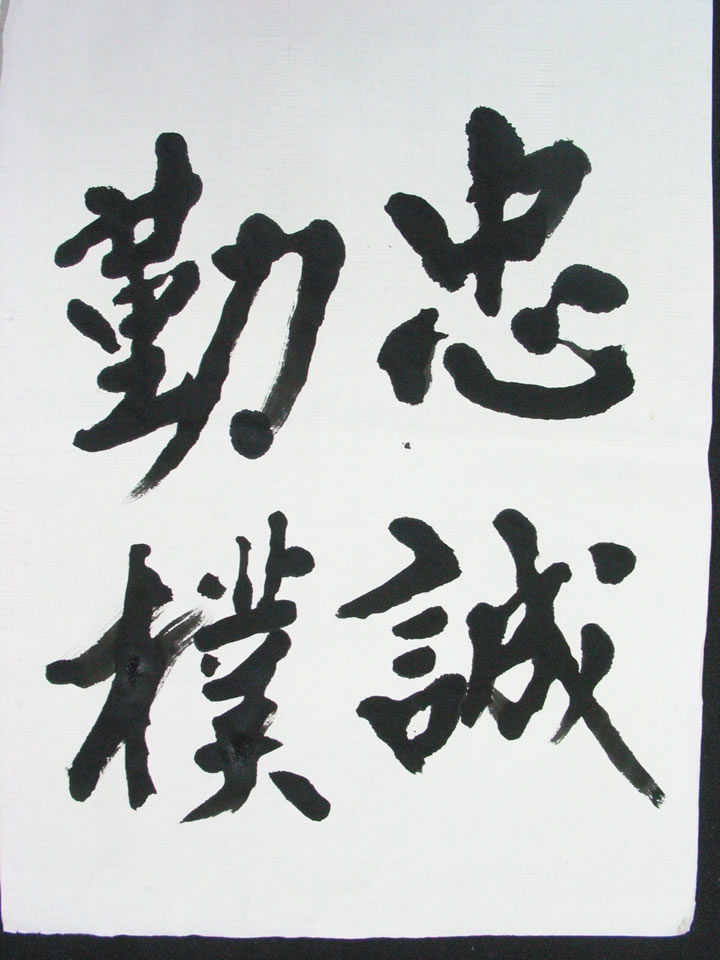 忠誠
勤樸